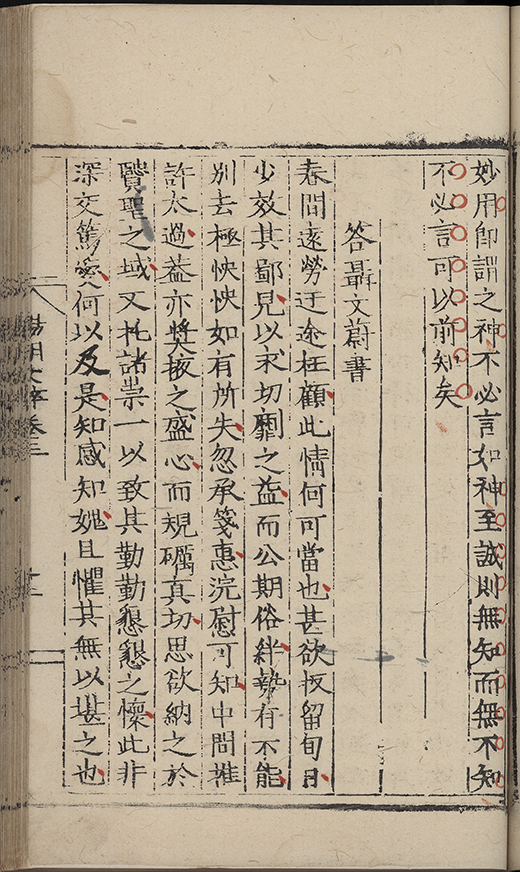 妙用卽謂之神不必言如神至誠則無知而無不知
不必言可以前知矣
答聶文蔚書
春間遠勞迂途枉顧此情何可當也甚欲扳留旬日
少效其鄙見以求切劘之益而公期俗絆埶有不能
別去極怏怏如有所失忽承箋惠浣慰可知中間推
許太過葢亦奬掖之盛心而規礪真切思欲納之於
賢聖之域又托諸崇一以致其勤勤懇懇之懷此非
深交篤愛何以及是知感知媿且懼其無以堪之也
陽明文粹卷三